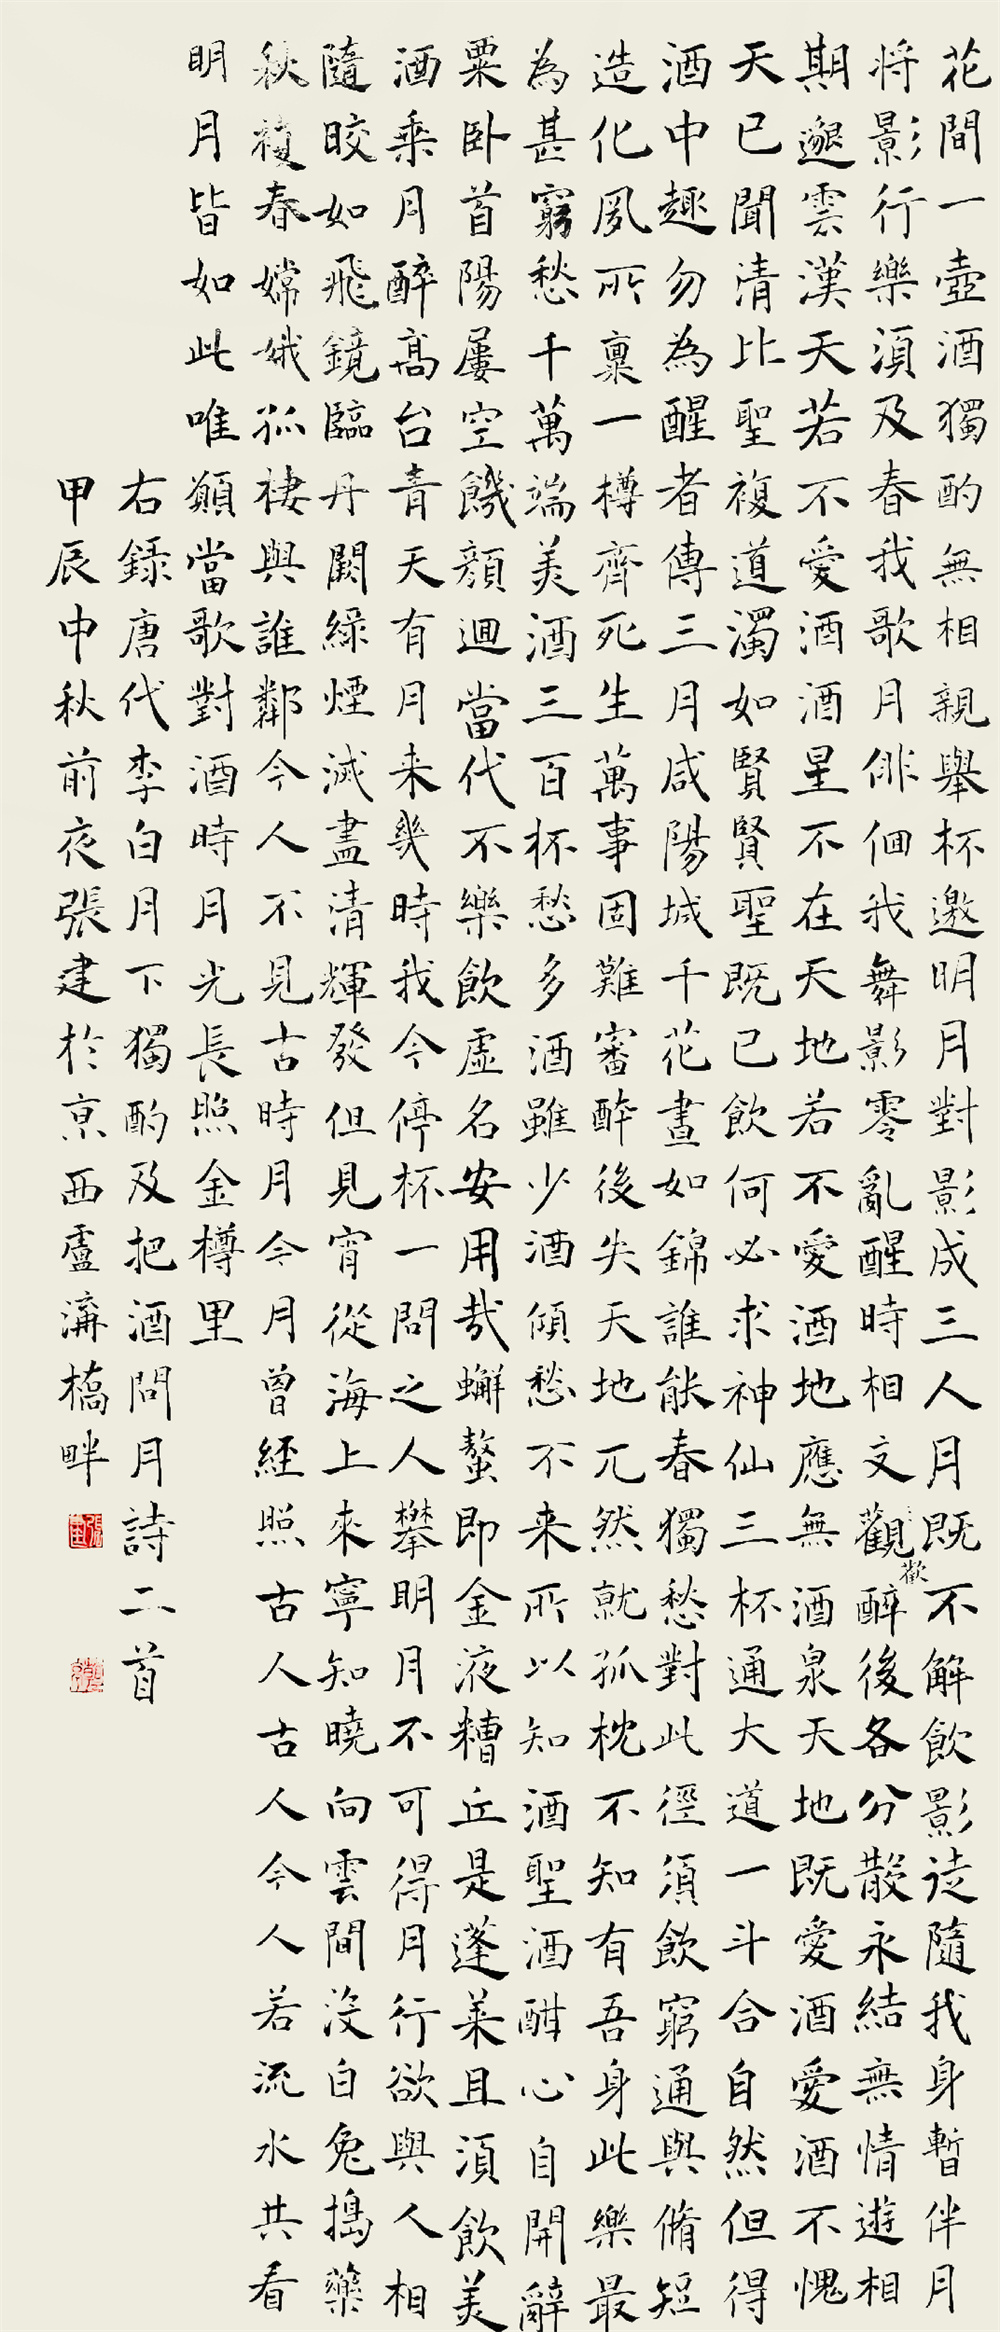 花間一壺酒獨酌無相親舉杯邀明月對影成三人月既不解飲影徒隨我身暫伴月
将影行樂須及春我歌月俳佪我舞影零亂醒時相交觀醉後各分散永結無情遊相
歡
期邈雲漢天若不愛酒酒星不在天地若不愛酒地應無酒泉天地既愛酒愛酒不愧
天已聞清比聖複道濁如賢賢聖既已飲何必求神仙三杯通大道一斗合自然但得
酒中趣勿為醒者傳三月咸陽城千花晝如錦誰能春獨愁對此徑須飲窮通與脩短
造化夙所稟一樽齊死生萬事固難審醉後失天地兀然就孤枕不知有吾身此樂最
為甚窮愁千萬端美酒三百杯愁多酒雖少酒傾愁不来所以知酒聖酒酣心自開辭
粟卧首陽屢空饑顏迴當代不樂飲虛名安用哉蠏螯即金液糟丘是蓬莱且須飲美
酒乘月醉高台青天有月来幾時我今停杯一問之人攀明月不可得月行欲與人相
隨皎如飛鏡臨丹闕綠煙滅盡清輝發但見宵從海上來寧知曉向雲間沒白兔搗藥
秋複春嫦娥孤棲與誰鄰今人不見古時月今月曾經照古人古人今人若流水共看
明月皆如此唯願當歌對酒時月光長照金樽里
右録唐代李白月下獨酌及把酒問月詩二首
甲辰中秋前夜張建於京西盧溝橋畔
張建